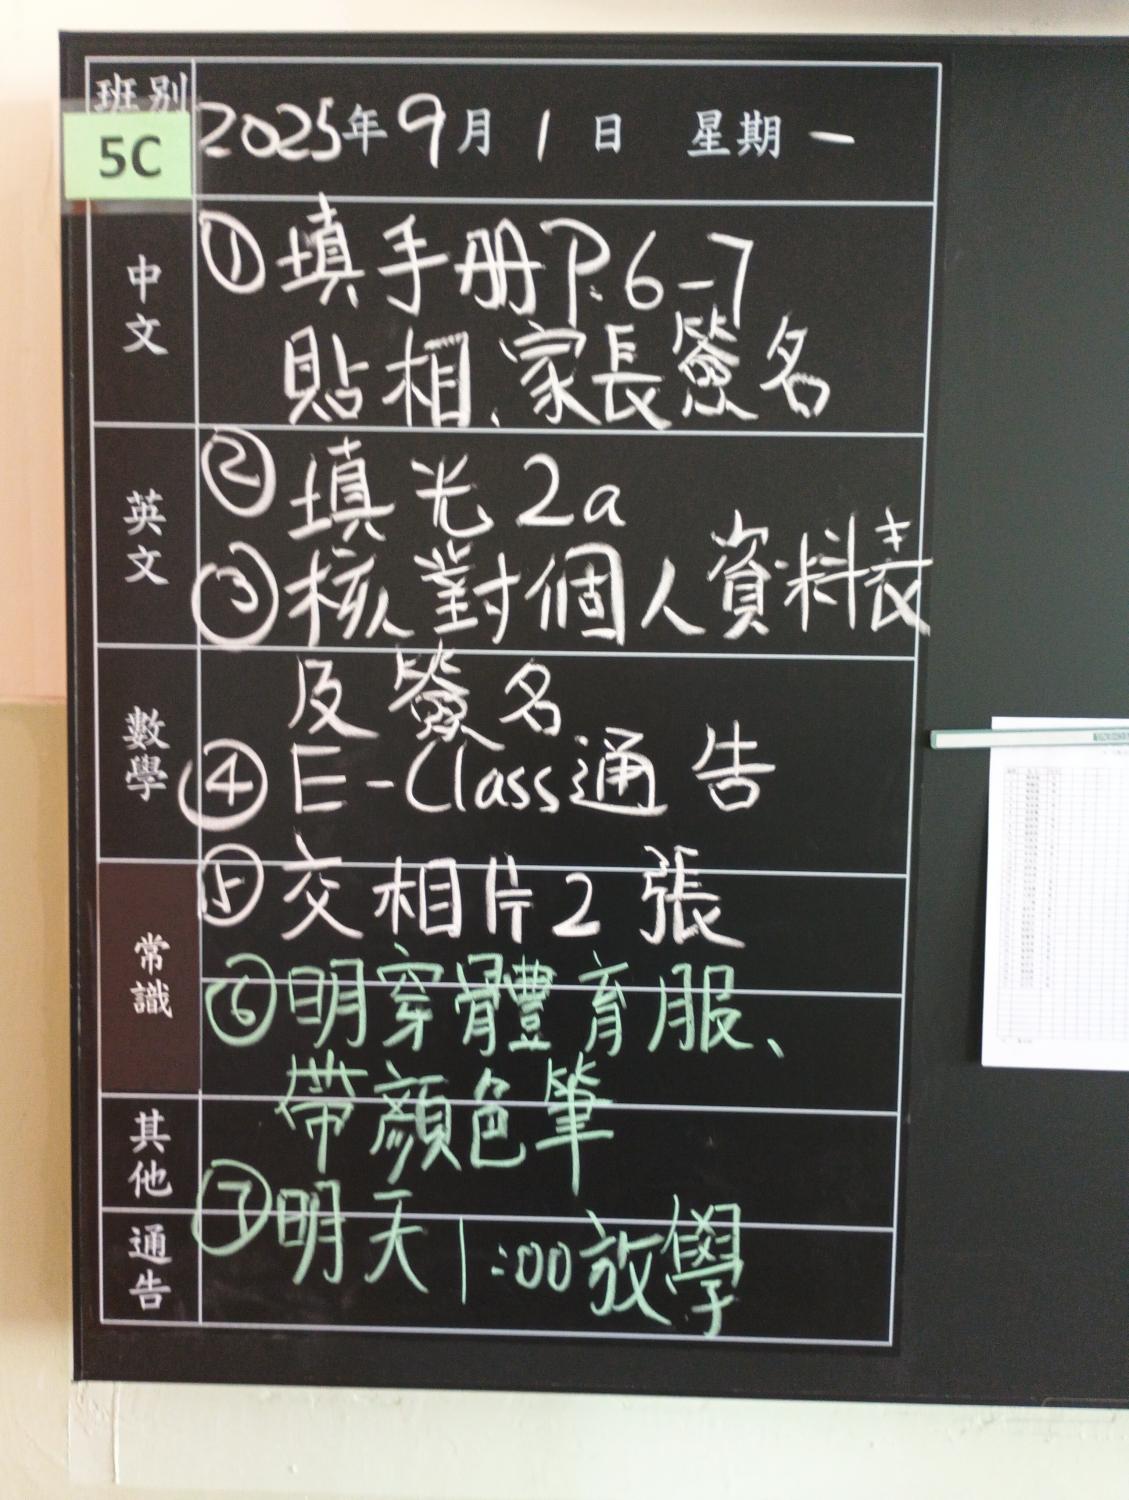 班別
5C
2025年9月1日 星期一
中文
①填手册P.6-7
貼相、家長簽名
英文
②填光2a
③核對個人資料表
數學
及簽名
④E-Class通告
常識
⑤交相片2張
⑥明穿體育服、
其他
帶顏色筆
通告
⑦明天1:00放學